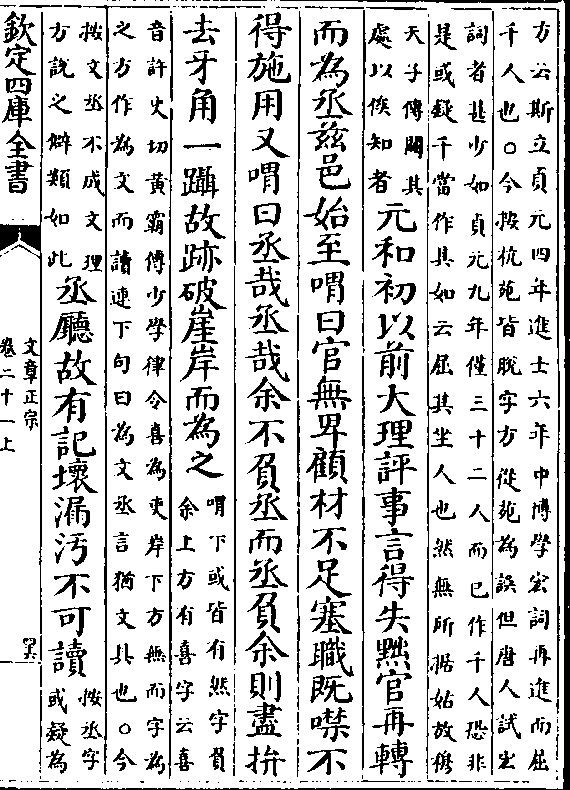 方云斯立貞元四年進士六年中博學宏詞再進而屈
千人也○今按杭苑皆脫字方從苑為誤但唐人試宏
詞者甚少如貞元九年僅三十二人而已作千人恐非
是或疑千當作其如云屈其坐人也然無所據姑放穆
天子傳闕其
處以俟知者
元和初以前大理評事言得失黜官再轉
而為丞兹邑始至喟曰官無卑顧材不足塞職既噤不
得施用又喟曰丞哉丞哉余不負丞而丞負余則盡枿
去牙角一躡故跡破崖岸而為之
喟下或皆有然字負
余上方有喜字云喜
音許史切黃霸傳少學律令喜為吏岸下方無而字為
之方作為文而讀連下句曰為文丞言猶文具也○今
按文丞不成文理
方說之僻類如此
丞廳故有記壞漏汚不可讀
按丞字
或疑為
欽定四庫全書
文章正宗
卷二十一上